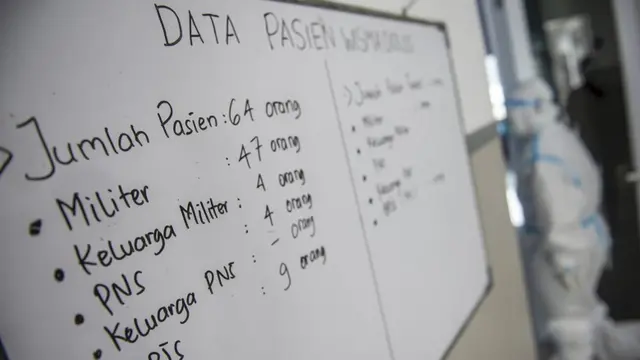 DATA PASIEN WISMA
> Jumlah Pasien : 64 orang
• Militer : 47 orang
• Keluarga Militer : 4 orang
• PNS : 4 orang
• Keluarga PNS : - orang
: 9 orang
> Jumlah
• Militer
• Keluarga Militer
• PNS
• Keluarga PNS